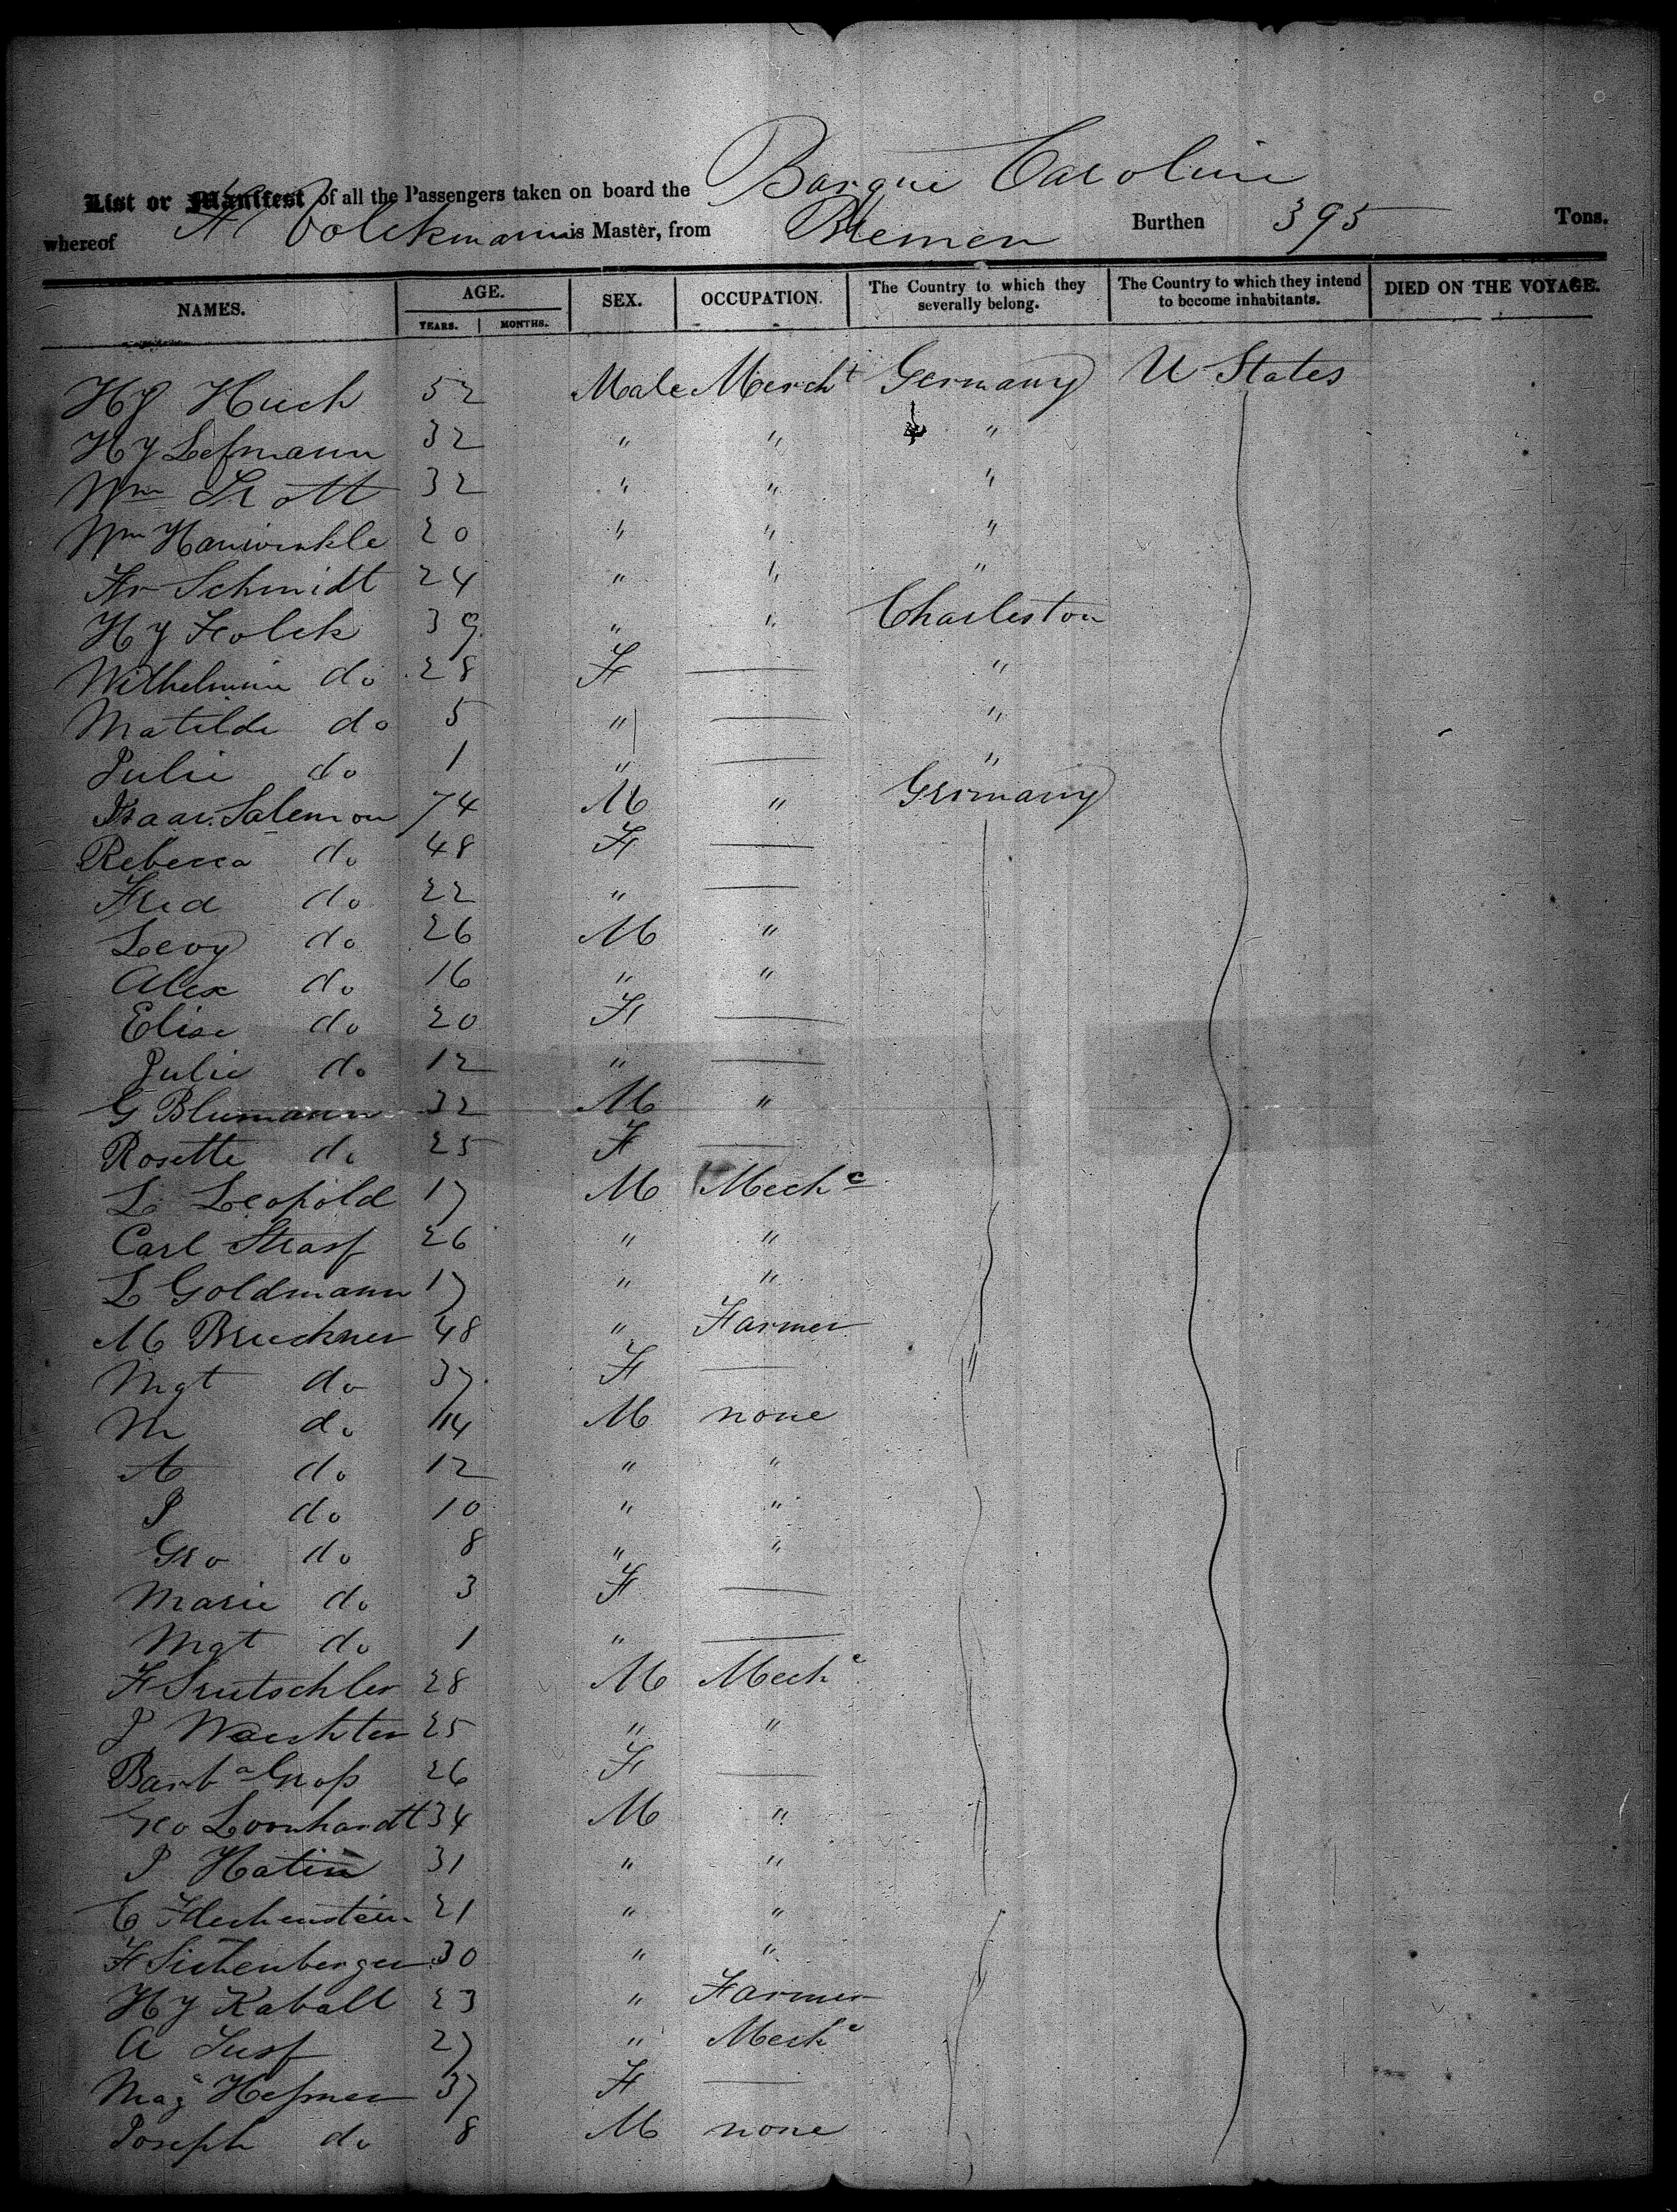 List or Manifest of all the Passengers taken on board the Barque Caroline
whereof H Volckmann is Master, from Bremen Burthen 395 Tons.
NAMES. AGE. SEX. OCCUPATION. The Country to which they severally belong. The Country to which they intend to become inhabitants. DIED ON THE VOYAGE.
YEARS. MONTHS.
Hy Huch 52 Male Mercht Germany U States
Hy Lefmann 32 " " "
Wm Trott 32 " " "
Wm Hanwinkle 20 " " "
Fr Schmidt 24 " " "
Hy Folck 39 " " Charleston
Wilhelmine do 28 F — "
Matilde do 5 " — "
Julie do 1 " — "
Isaac Salemon 74 M " Germany
Rebecca do 48 F —
Fred do 22 " —
Levy do 26 M "
Alex do 16 " "
Elise do 20 F —
Julie do 12 " —
G Blumann 32 M "
Rosette do 25 F —
L Leopold 17 M Mechc
Carl Strasf 26 " "
L Goldmann 17 " "
M Brückner 48 " Farmer
Mgt do 37 F — "
M do 14 M none
A do 12 " "
P do 10 " "
Geo do 8 " "
Marie do 3 F —
Mgt do 1 " —
F Trutschler 28 M Mechc
J Waechter 25 " "
Barba Groß 26 F —
Geo Leonhardt 34 M "
P Hatin 31 " "
C Flechenstein 21 " "
F Sichenberger 30 " "
Hy Kaball 23 " Farmer
A Tusf 27 " Mechc
Maga Heßner 37 F —
Joseph do 8 M none